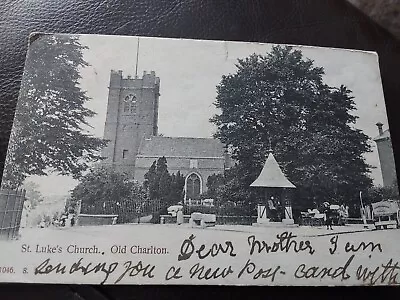 St. Luke's Church, Old Charlton.
Dear Mother I am
1046. S. sending you a new Post-card with